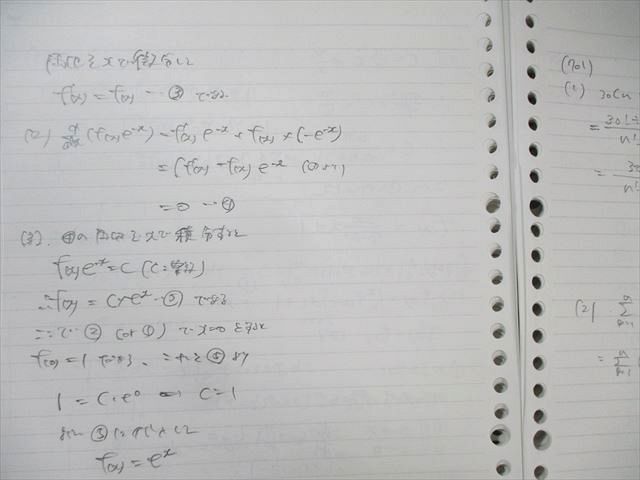 両辺をxで微分して
f'(x) = f(x) … ③ である
(2) d/dx (f(x)e^{-x}) = f'(x) e^{-x} + f(x) × (-e^{-x})
= (f'(x) - f(x)) e^{-x} (③より)
= 0 … ④
(3). ④の両辺をxで積分すると
f(x)e^{-x} = C (C:定数)
∴ f(x) = C・e^x … ⑤ である
ここで ② (or ①) で x=0 とすると
f(0) = 1 である、これと ⑤ より
1 = C・e^0 C = 1
⑤に代入して
f(x) = e^x
(701)
(1) 30Cn
= 30!
n!
= 30
n!
(2) Σ
= Σ